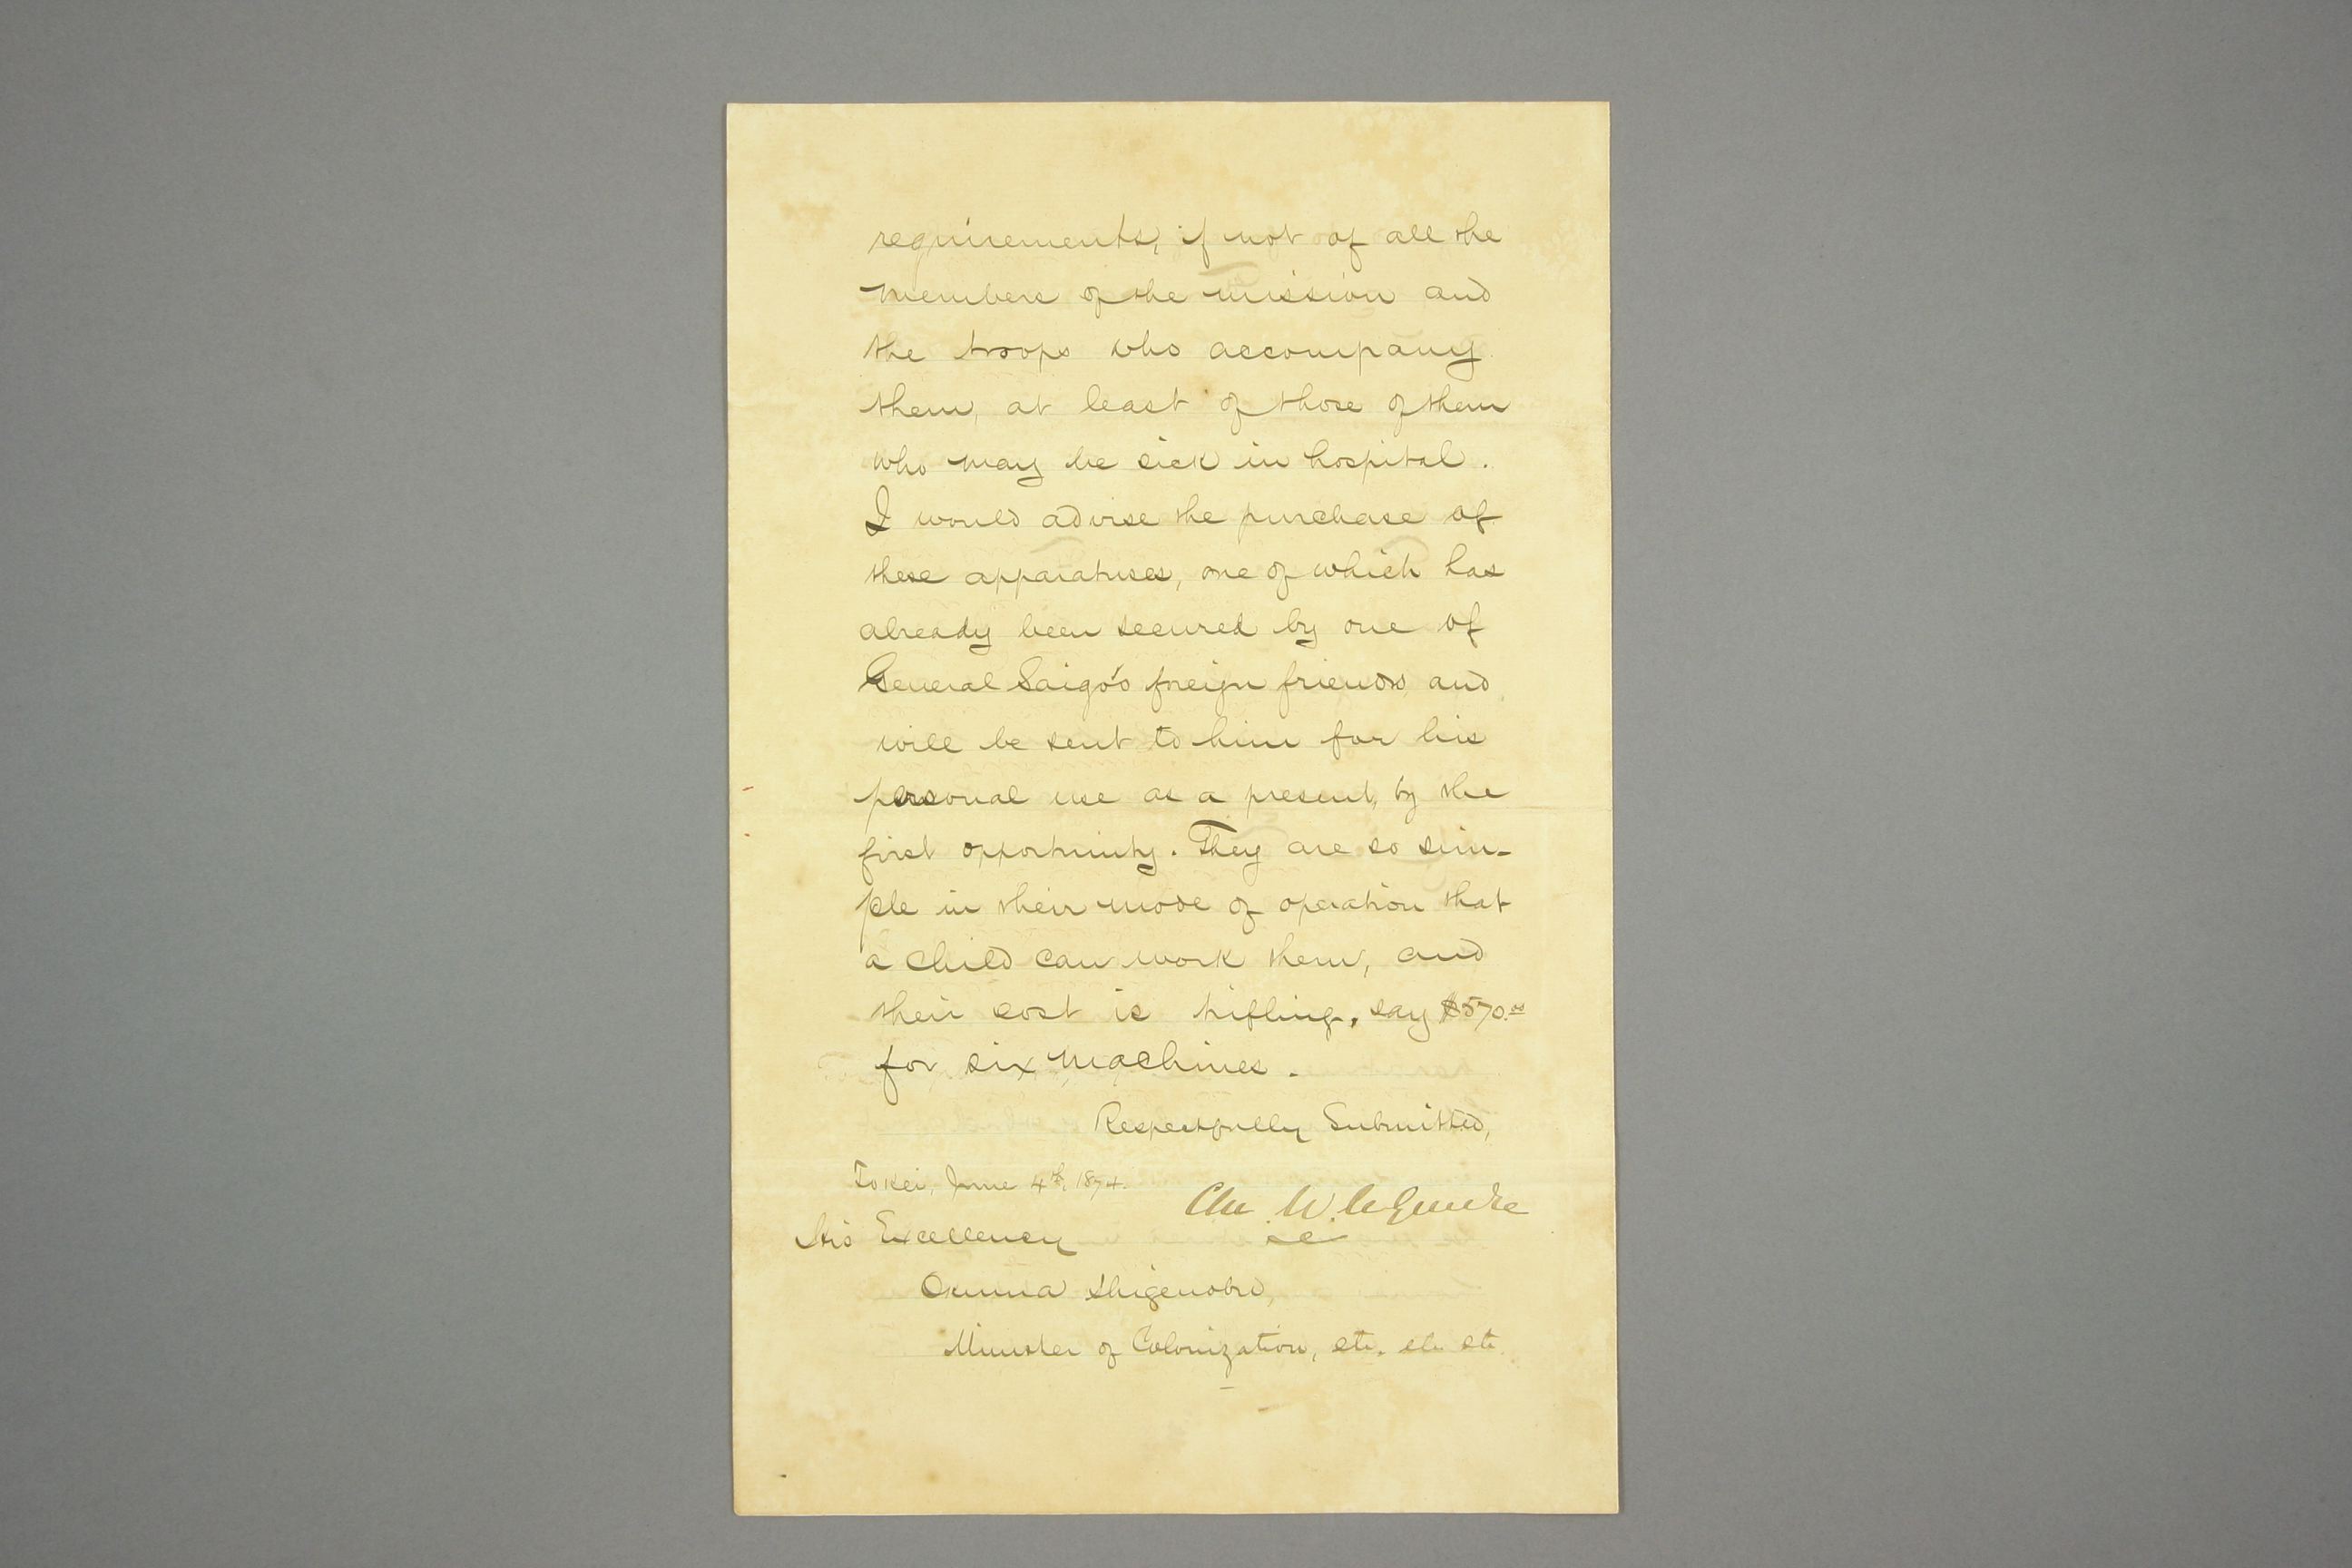 requirements, if not of all the
members of the mission and
the troops who accompany
them, at least of those of them
who may be sick in hospital.
I would advise the purchase of
these apparatuses, one of which has
already been secured by one of
General Saigo's foreign friends and
will be sent to him for his
personal use as a present, by the
first opportunity. They are so sim-
ple in their mode of operation that
a child can work them, and
their cost is trifling, say $570.00
for six machines.
Respectfully Submitted,
Tokei, June 4th, 1874.
Cha. W. LeGendre
His Excellency
Okuma Shigenobu,
Minister of Colonization, etc. etc etc